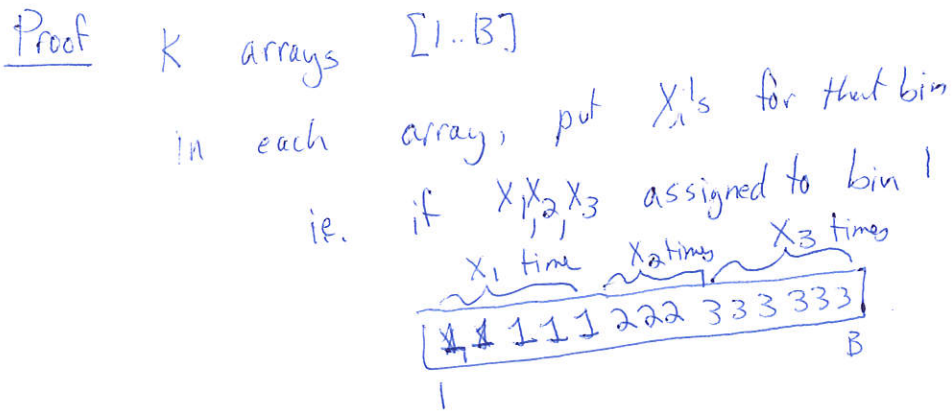 Proof K arrays [1..B]
in each array, put Xi's for that bin
ie. if X1, X2, X3 assigned to bin 1
X1 time X2 times X3 times
1 1 1 1 1 2 2 2 3 3 3 3 3 3
1 B